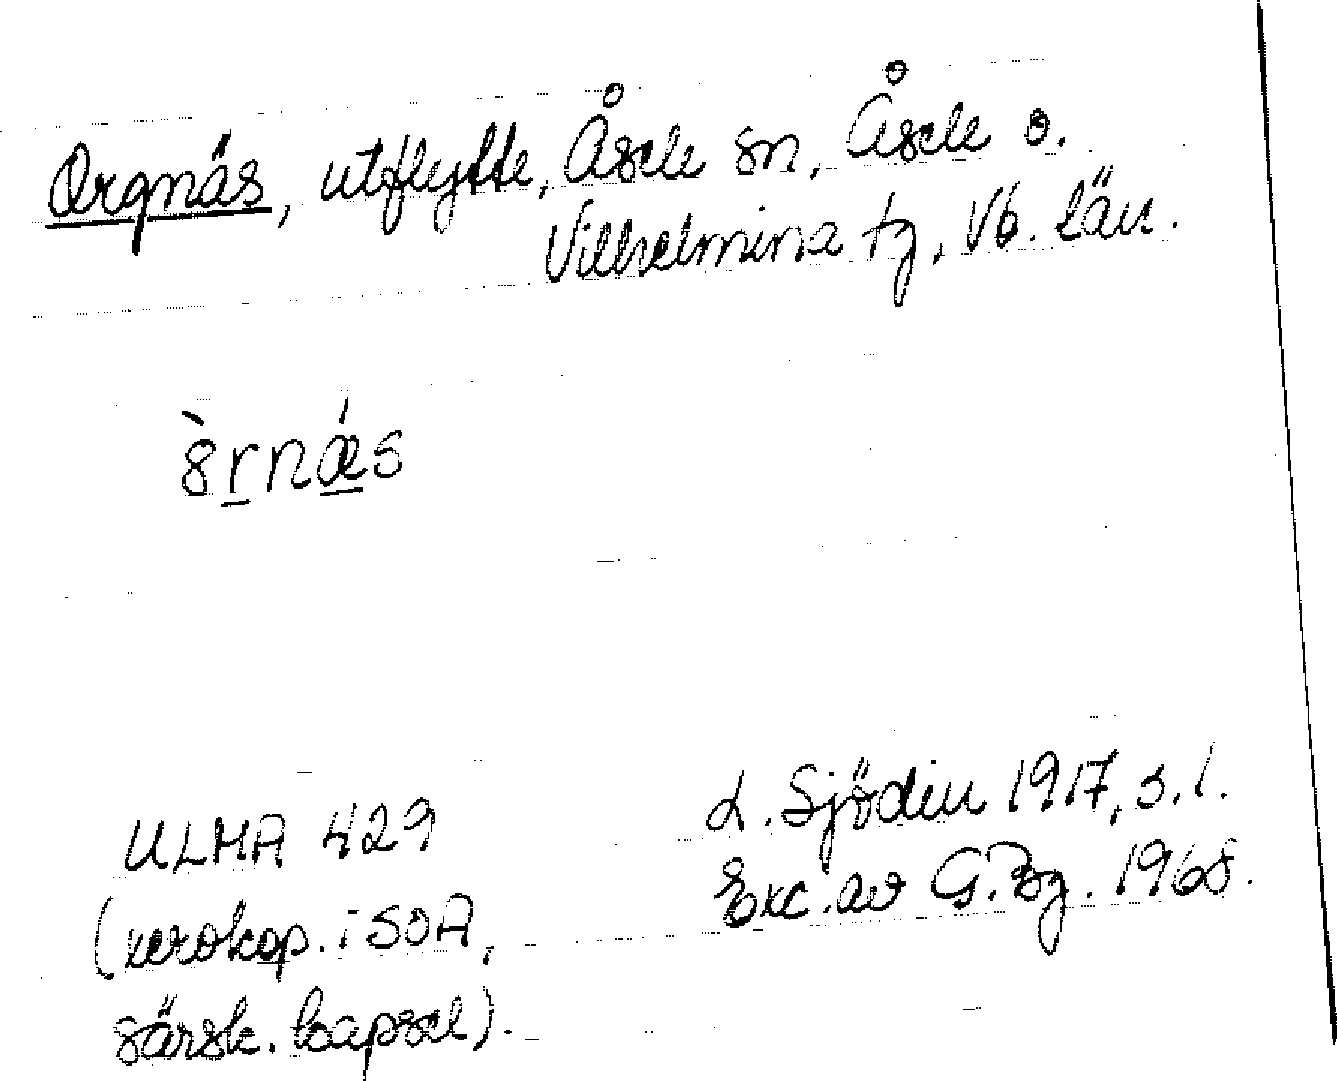 Orgnäs, utflytte, Åsele sn, Åsele o.
Vilhelmina tg, Vb. län.
L. Sjödin 1917, s. 1.
Exc. av G. Bg. 1968.
ULMA 429
(xerokop. i SOA,
särsk. kapsel).